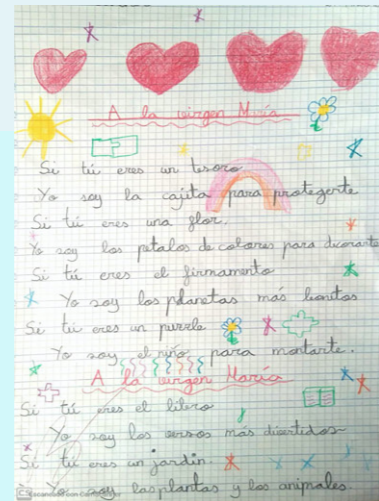 A la virgen María
Si tú eres un tesoro
Yo soy la cajita para protegerte
Si tú eres una flor.
Yo soy los petalos de colores para decorarte
Si tú eres el firmamento
Yo soy los planetas más bonitos
Si tú eres un puzzle
Yo soy el niño para montarte.
A la virgen María
Si tú eres el libro
Yo soy los versos más divertidos
Si tú eres un jardín.
Yo soy las plantas y los animales.